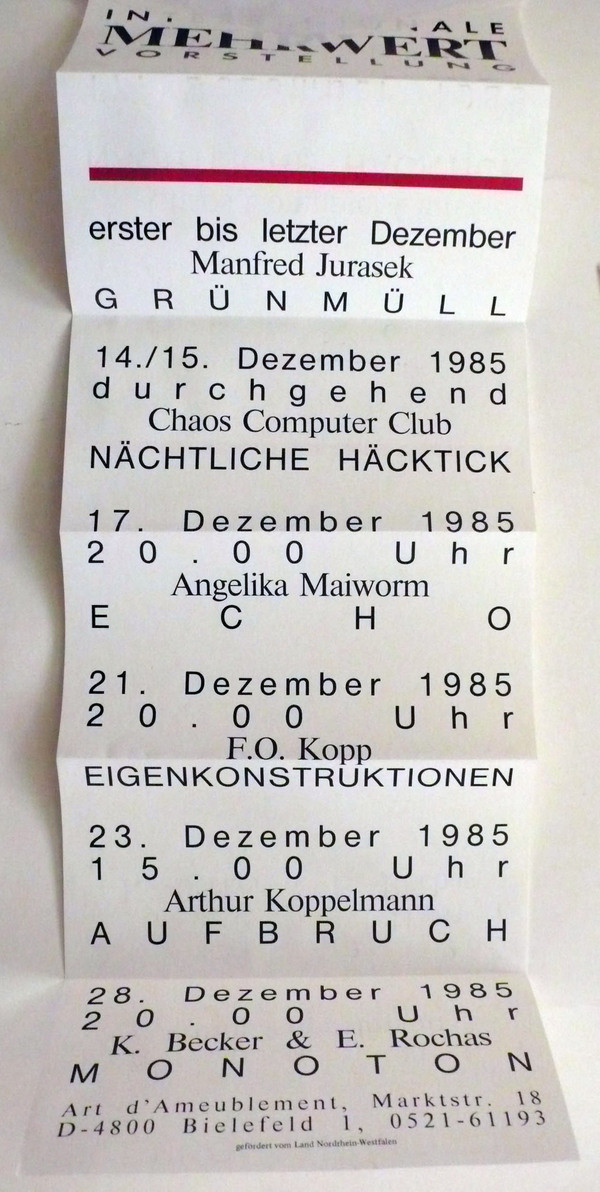 MEHRWERT
VORSTELLUNG
erster bis letzter Dezember
Manfred Jurasek
GRÜNMÜLL
14./15. Dezember 1985
durchgehend
Chaos Computer Club
NÄCHTLICHE HÄCKTICK
17. Dezember 1985
20.00 Uhr
Angelika Maiworm
ECHO
21. Dezember 1985
20.00 Uhr
F.O. Kopp
EIGENKONSTRUKTIONEN
23. Dezember 1985
15.00 Uhr
Arthur Koppelmann
AUFBRUCH
28. Dezember 1985
20.00 Uhr
K. Becker & E. Rochas
MONOTON
Art d'Ameublement, Marktstr. 18
D-4800 Bielefeld 1, 0521-61193
gefördert vom Land Nordrhein-Westfalen